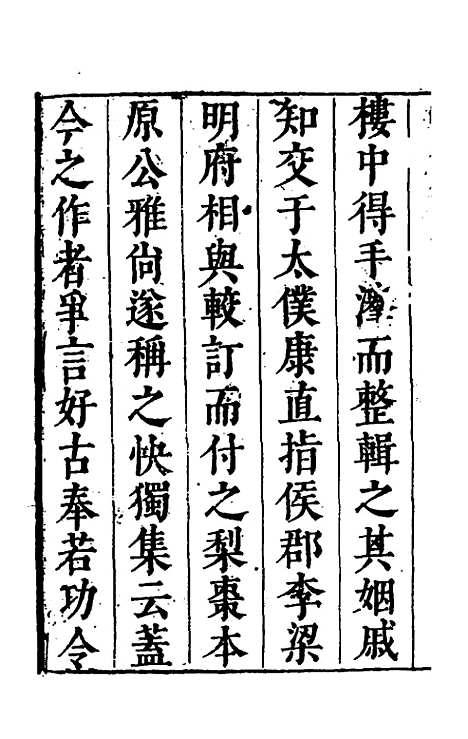 樓中得手澤而整輯之其姻戚
知交于太僕康直指侯郡李梁
明府相與較訂而付之梨棗本
原公雅尙遂稱之快獨集云蓋
今之作者爭言好古奉若功令